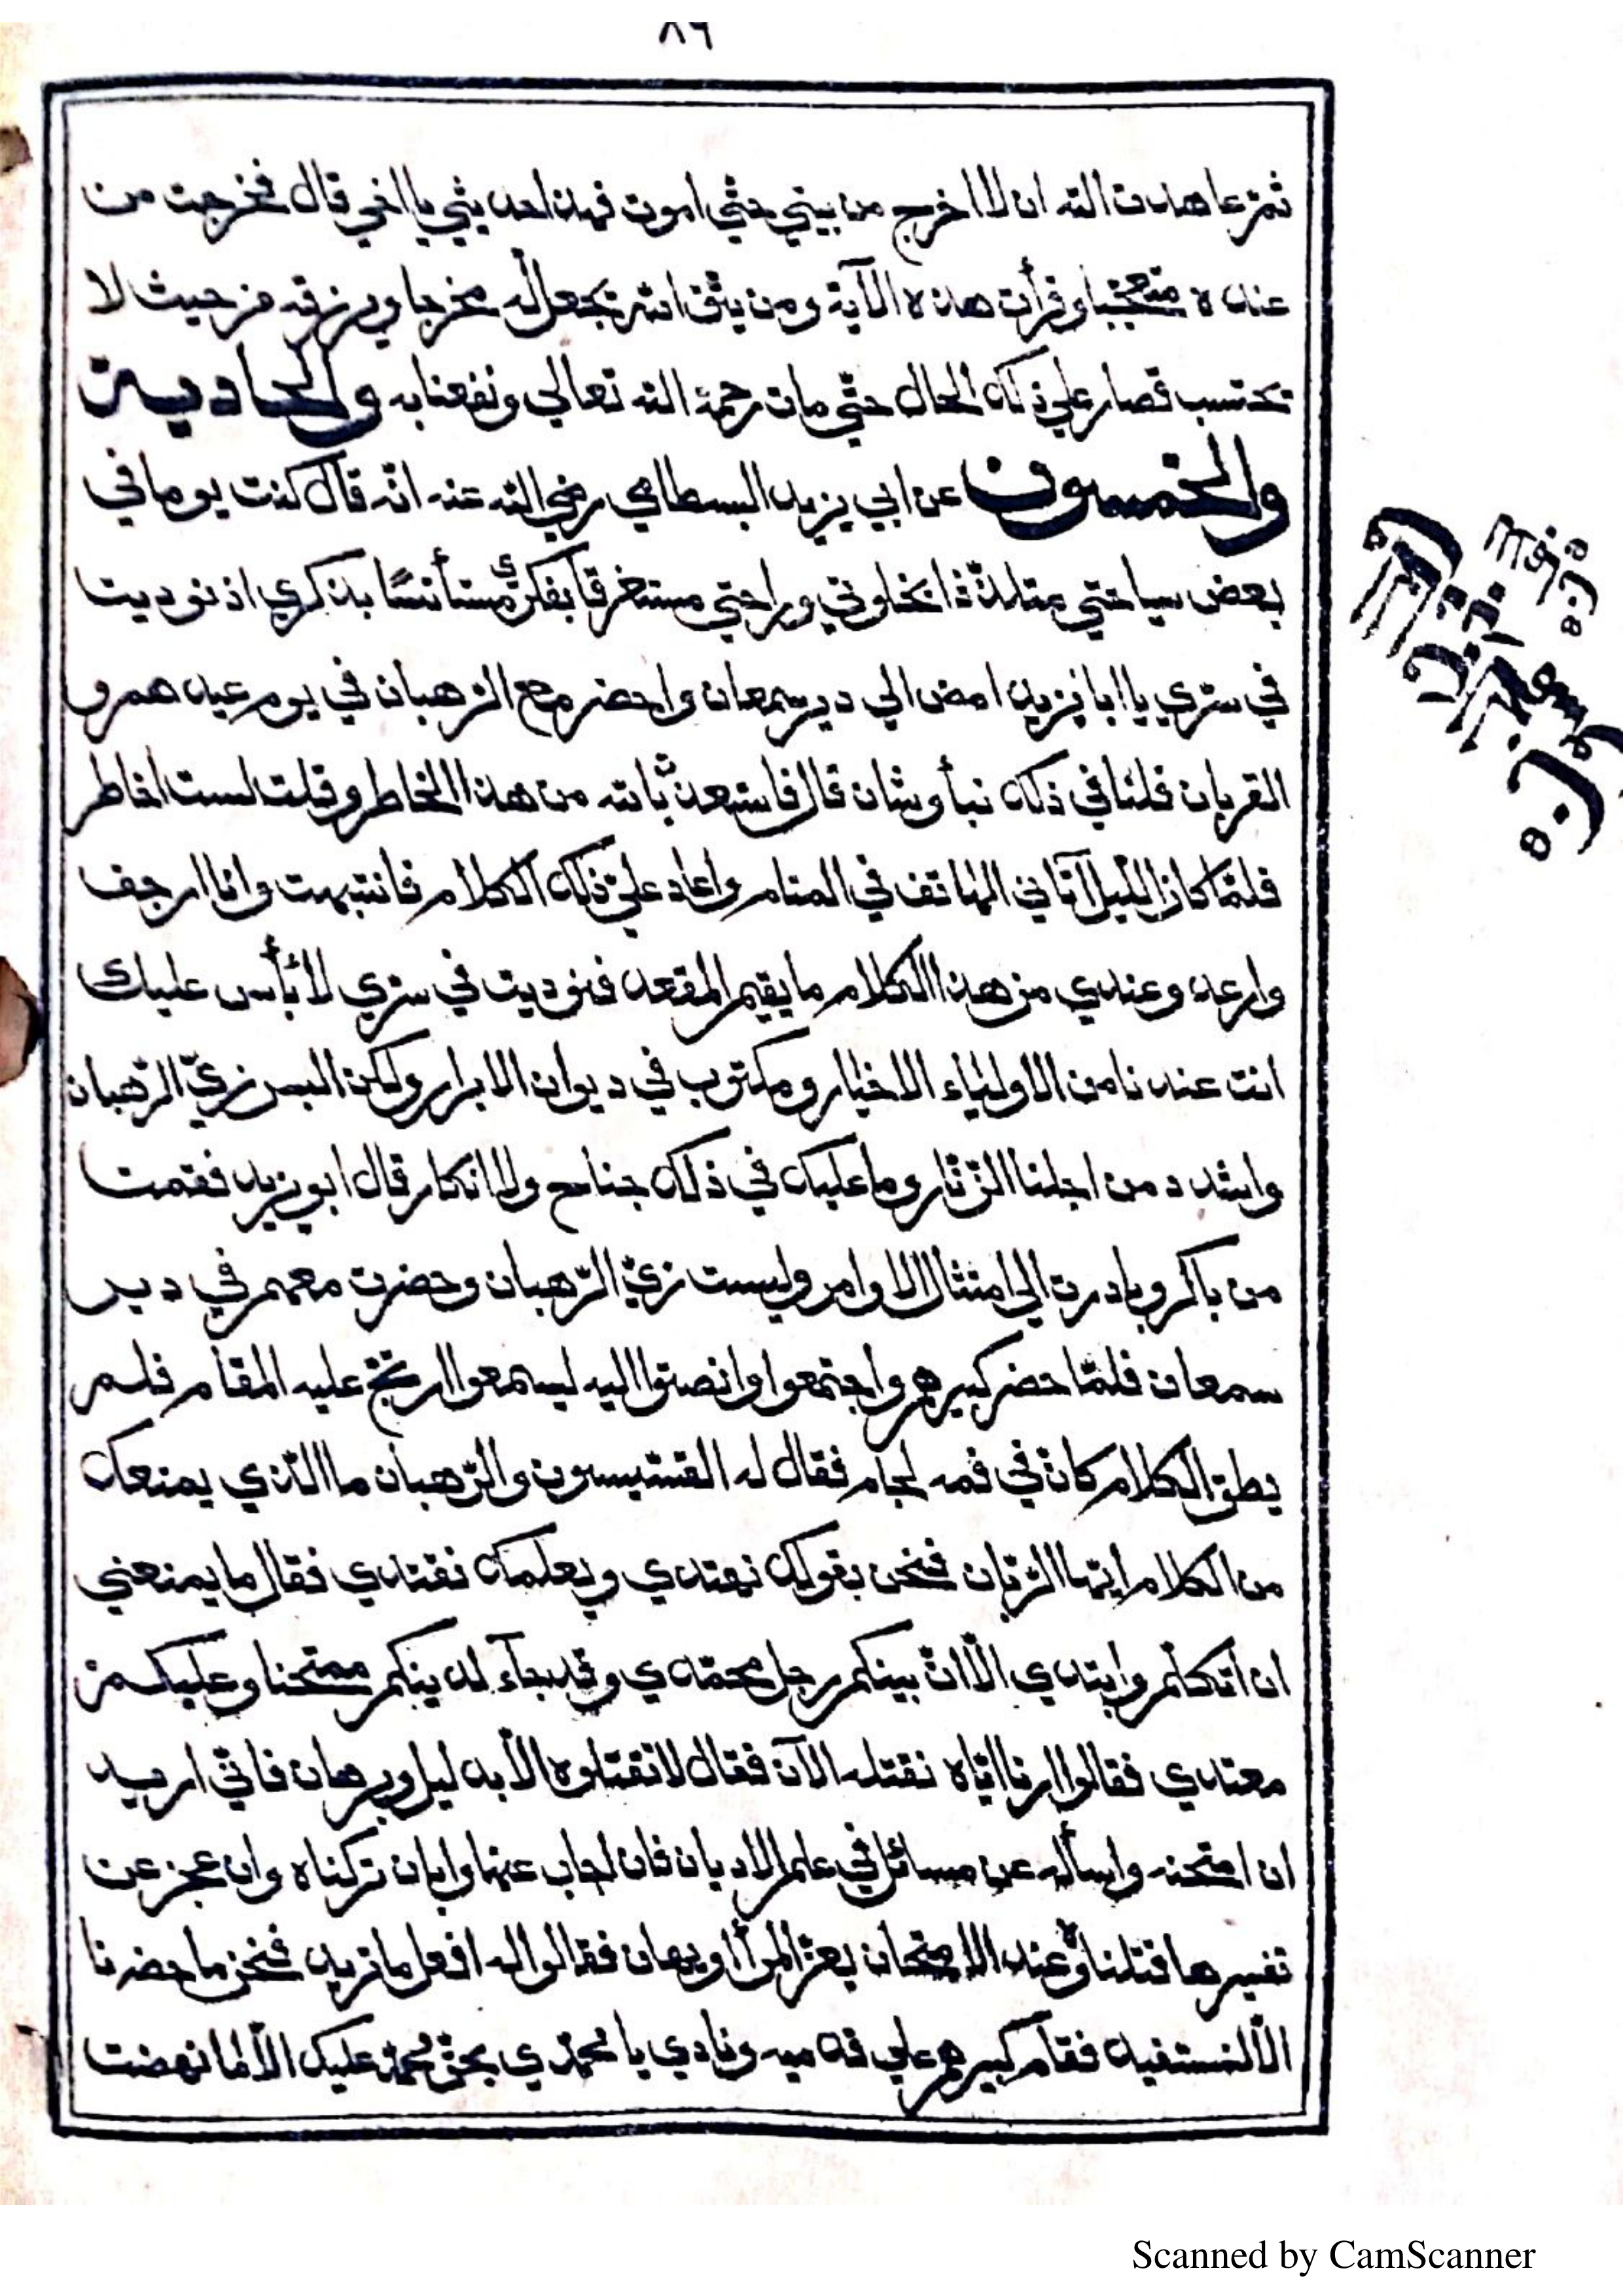 ٨٦
ثم عاهدت الله ان لا اخرج من بيتي حتي اموت فهذا حديثي يا اخي قال فخرجت من
عنده متعجبا وقرأت هذه الآية ومن يتق الله يجعل له مخرجا ويرزقه من حيث لا
يحتسب فصار علي ذلك الحال حتي مات رحمة الله تعالي ونفعنا به والحادية
والخمسون عن ابي يزيد البسطامي رضي الله عنه انه قال كنت يوما في
بعض سياحتي متلذذا بخلوتي وراحتي مستغرقا بفكري مستأنسًا بذكري اذ نوديت
في سري يا ابا يزيد امض الي دير سمعان واحضر مع الرهبان في يوم عيدهم و
القربان فلنا في ذلك نبأ وشان قال فاستعذت بالله من هذا الخاطر وقلت لست اخاطر
فلما كان الليل آتاني الهاتف في المنام واعاد علي ذلك الكلام فانتبهت وانا ارجف
وارعد وعندي من هذا الكلام ما يقيم المقعد فنوديت في سري لا بأس عليك
انت عندنا من الاولياء الاخيار ومكتوب في ديوان الابرار ولكن البس زي الرهبان
واشدد من اجلنا الزنار وما عليك في ذلك جناح ولا انكار قال ابو يزيد فقمت
من باكر وبادرت الي امتثال الاوامر ولبست زي الرهبان وحضرت معهم في دير
سمعان فلما حضر كبيرهم واجتمعوا وانصتوا اليه ليسمعوا ارتج عليه المقام فلم
يطق الكلام كان في فمه لجام فقال له القسيسون والرهبان ما الذي يمنعك
من الكلام ايها الربان فنحن بقولك نهتدي وبعلمك نقتدي فقال ما يمنعني
ان اتكلم وابتدي الا ان بينكم رجل محمدي وقد جآء لدينكم ممتحنا وعليكم
معتدي فقالوا ارنا اياه نقتله الآن فقال لا تقتلوه الا بدليل وبرهان فاني اريد
ان امتحنه واسأله عن مسائل في علم الاديان فان اجاب عنها وابان تركناه وان عجز عن
تفسيرها قتلناه وعند الامتحان يعز المرأ او يهان فقالوا له افعل ما تريد فنحن ما حضرنا
الا لنستفيد فقام كبيرهم علي قدميه ونادي يا محمدي بحق محمد عليك الا لما نهضت
Scanned by CamScanner